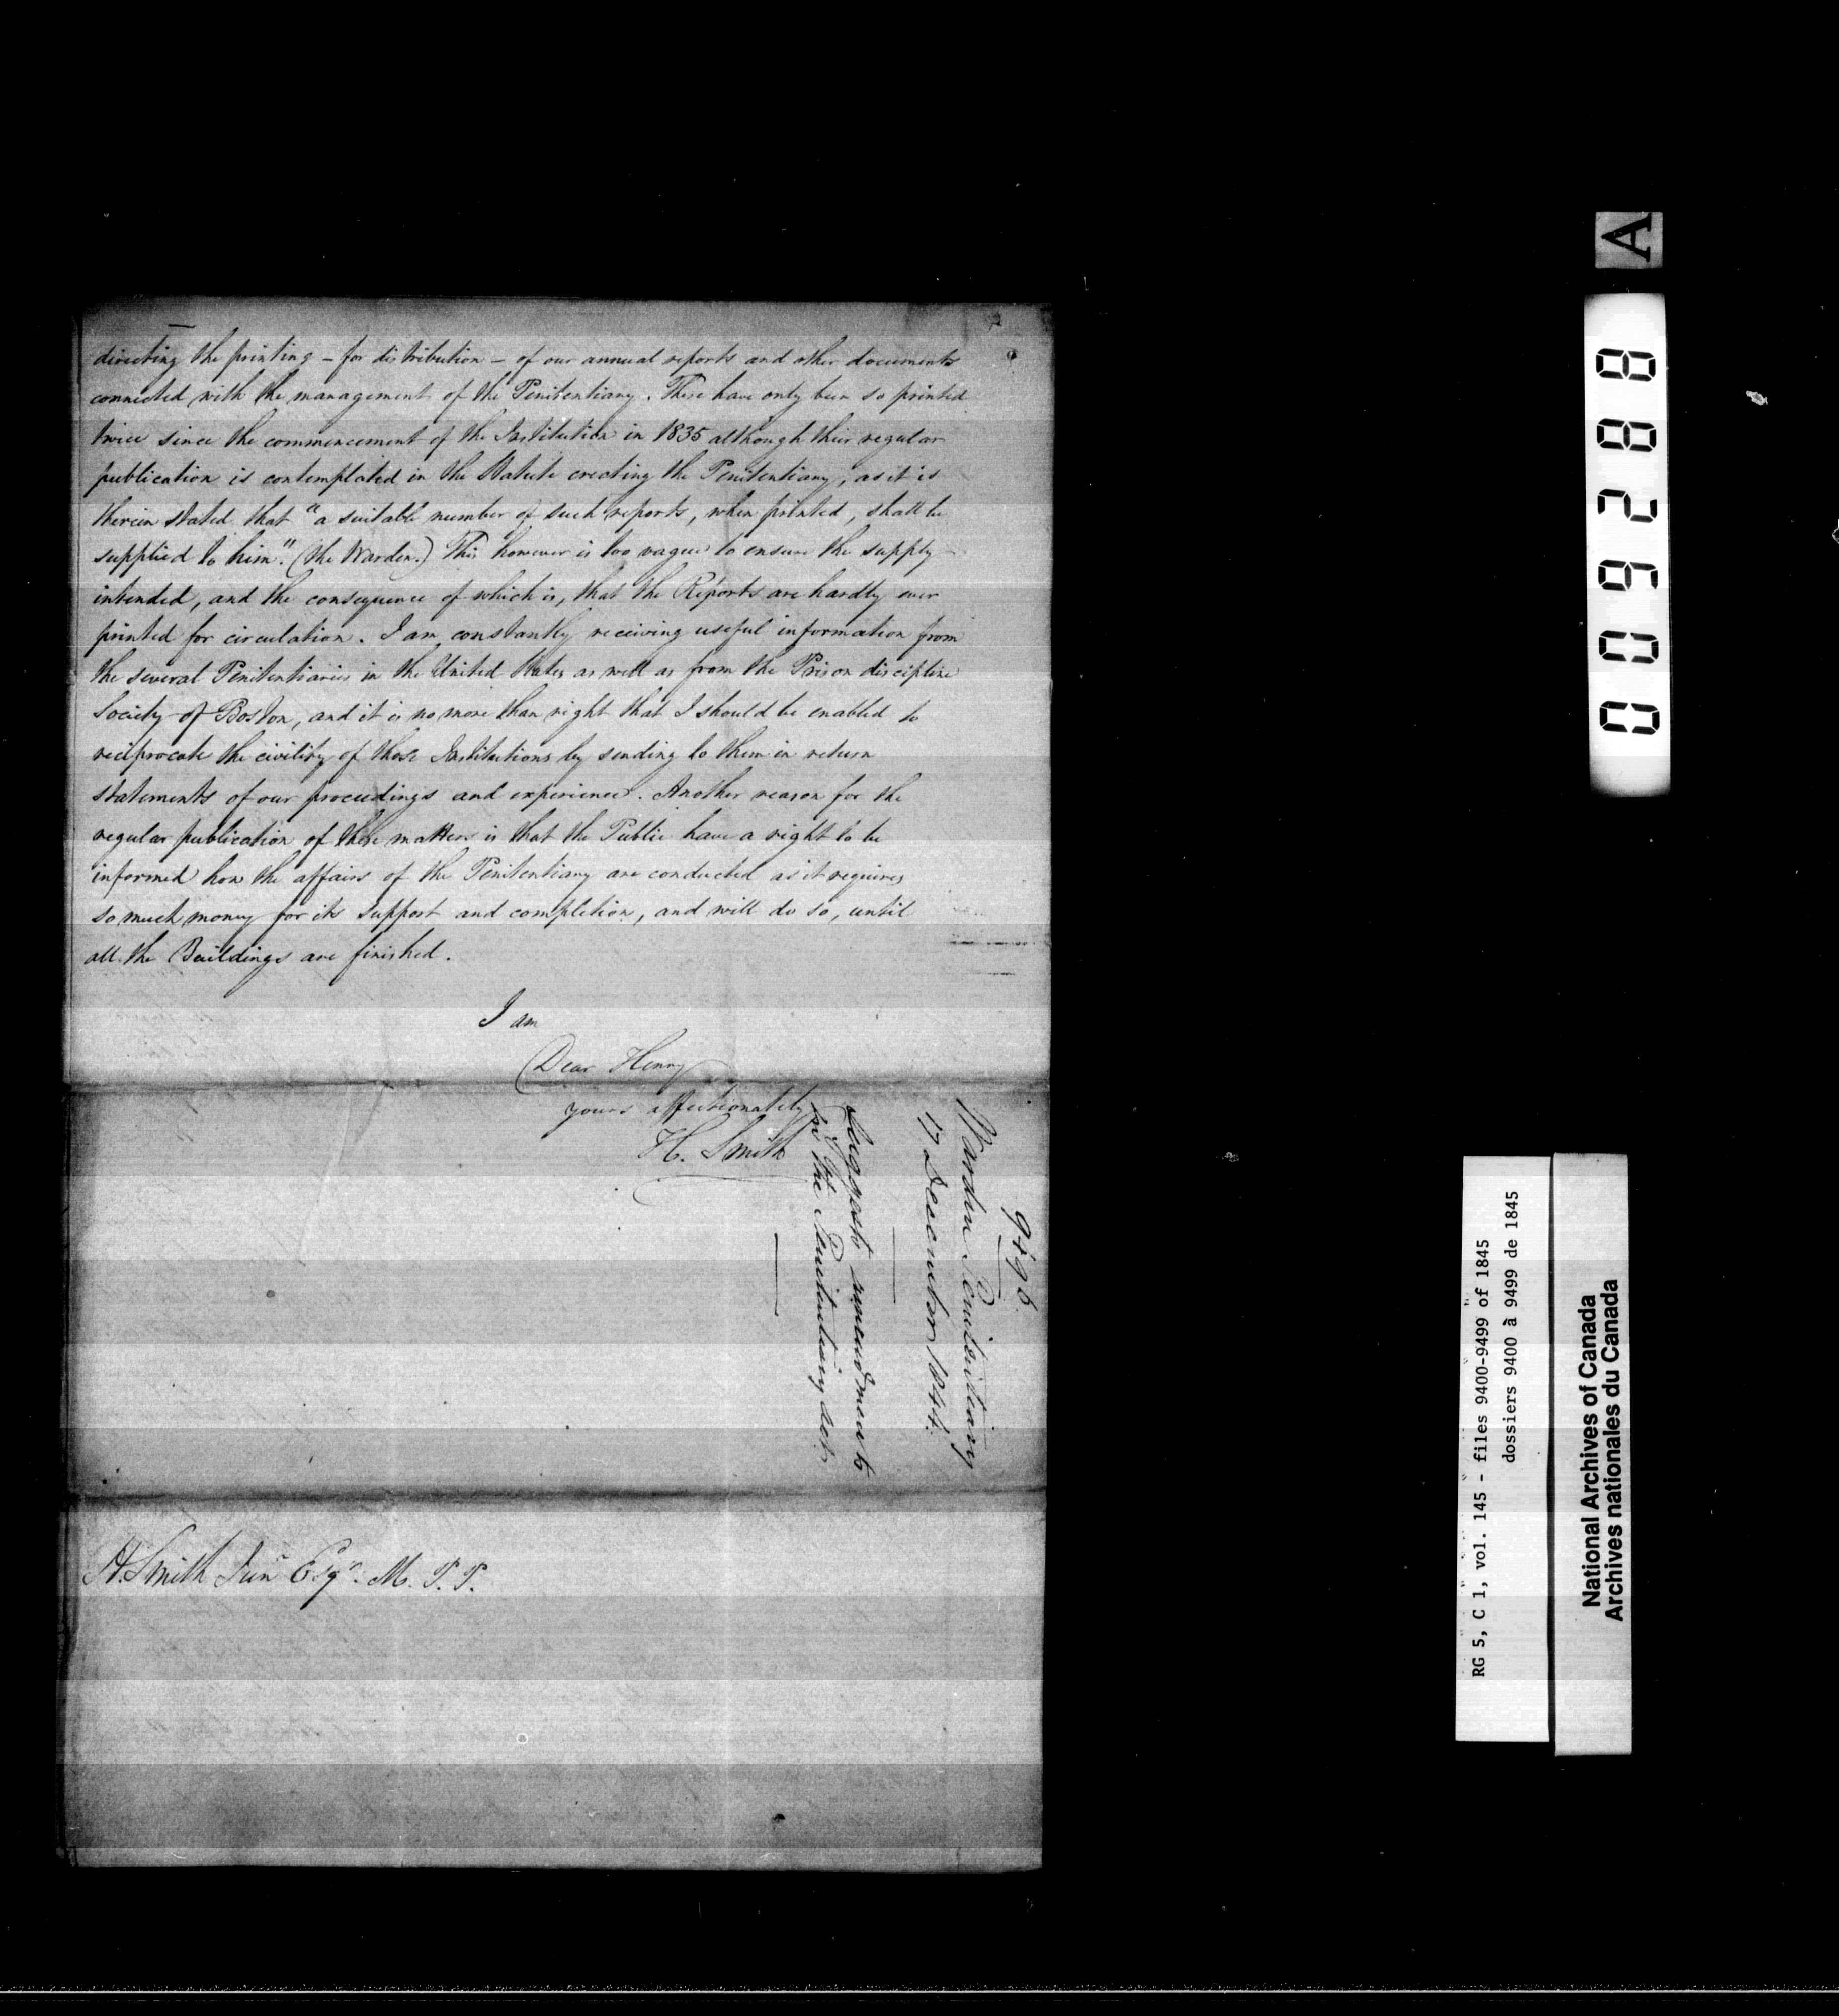 directing the printing – for distribution – of our annual reports and other documents
connected with the management of the Penitentiary. These have only been so printed
twice since the commencement of the Institution in 1835 although their regular
publication is contemplated in the Statute erecting the Penitentiary, as it is
therein stated that "a suitable number of such reports, when printed, shall be
supplied to him". (the Warden.) This however is too vague to ensure the supply
intended, and the consequence of which is, that the Reports are hardly ever
printed for circulation. I am constantly receiving useful information from
the several Penitentiaries in the United States as well as from the Prison discipline
Society of Boston, and it is no more than right that I should be enabled to
reciprocate the civility of those Institutions by sending to them in return
statements of our proceedings and experience. Another reason for the
regular publication of these matters is that the Public have a right to be
informed how the affairs of the Penitentiary are conducted as it requires
so much money for its support and completion, and will do so, until
all the Buildings are finished.
I am
Dear Henry
yours affectionately
H. Smith
9496
Warden Penitentiary
17 December 1844.
Suggests amendments
in the Penitentiary act.
H. Smith Junr Esqr. M. P. P.
A
0 0 6 2 8 8
RG 5, C 1, vol. 145 - files 9400-9499 of 1845
dossiers 9400 à 9499 de 1845
National Archives of Canada
Archives nationales du Canada